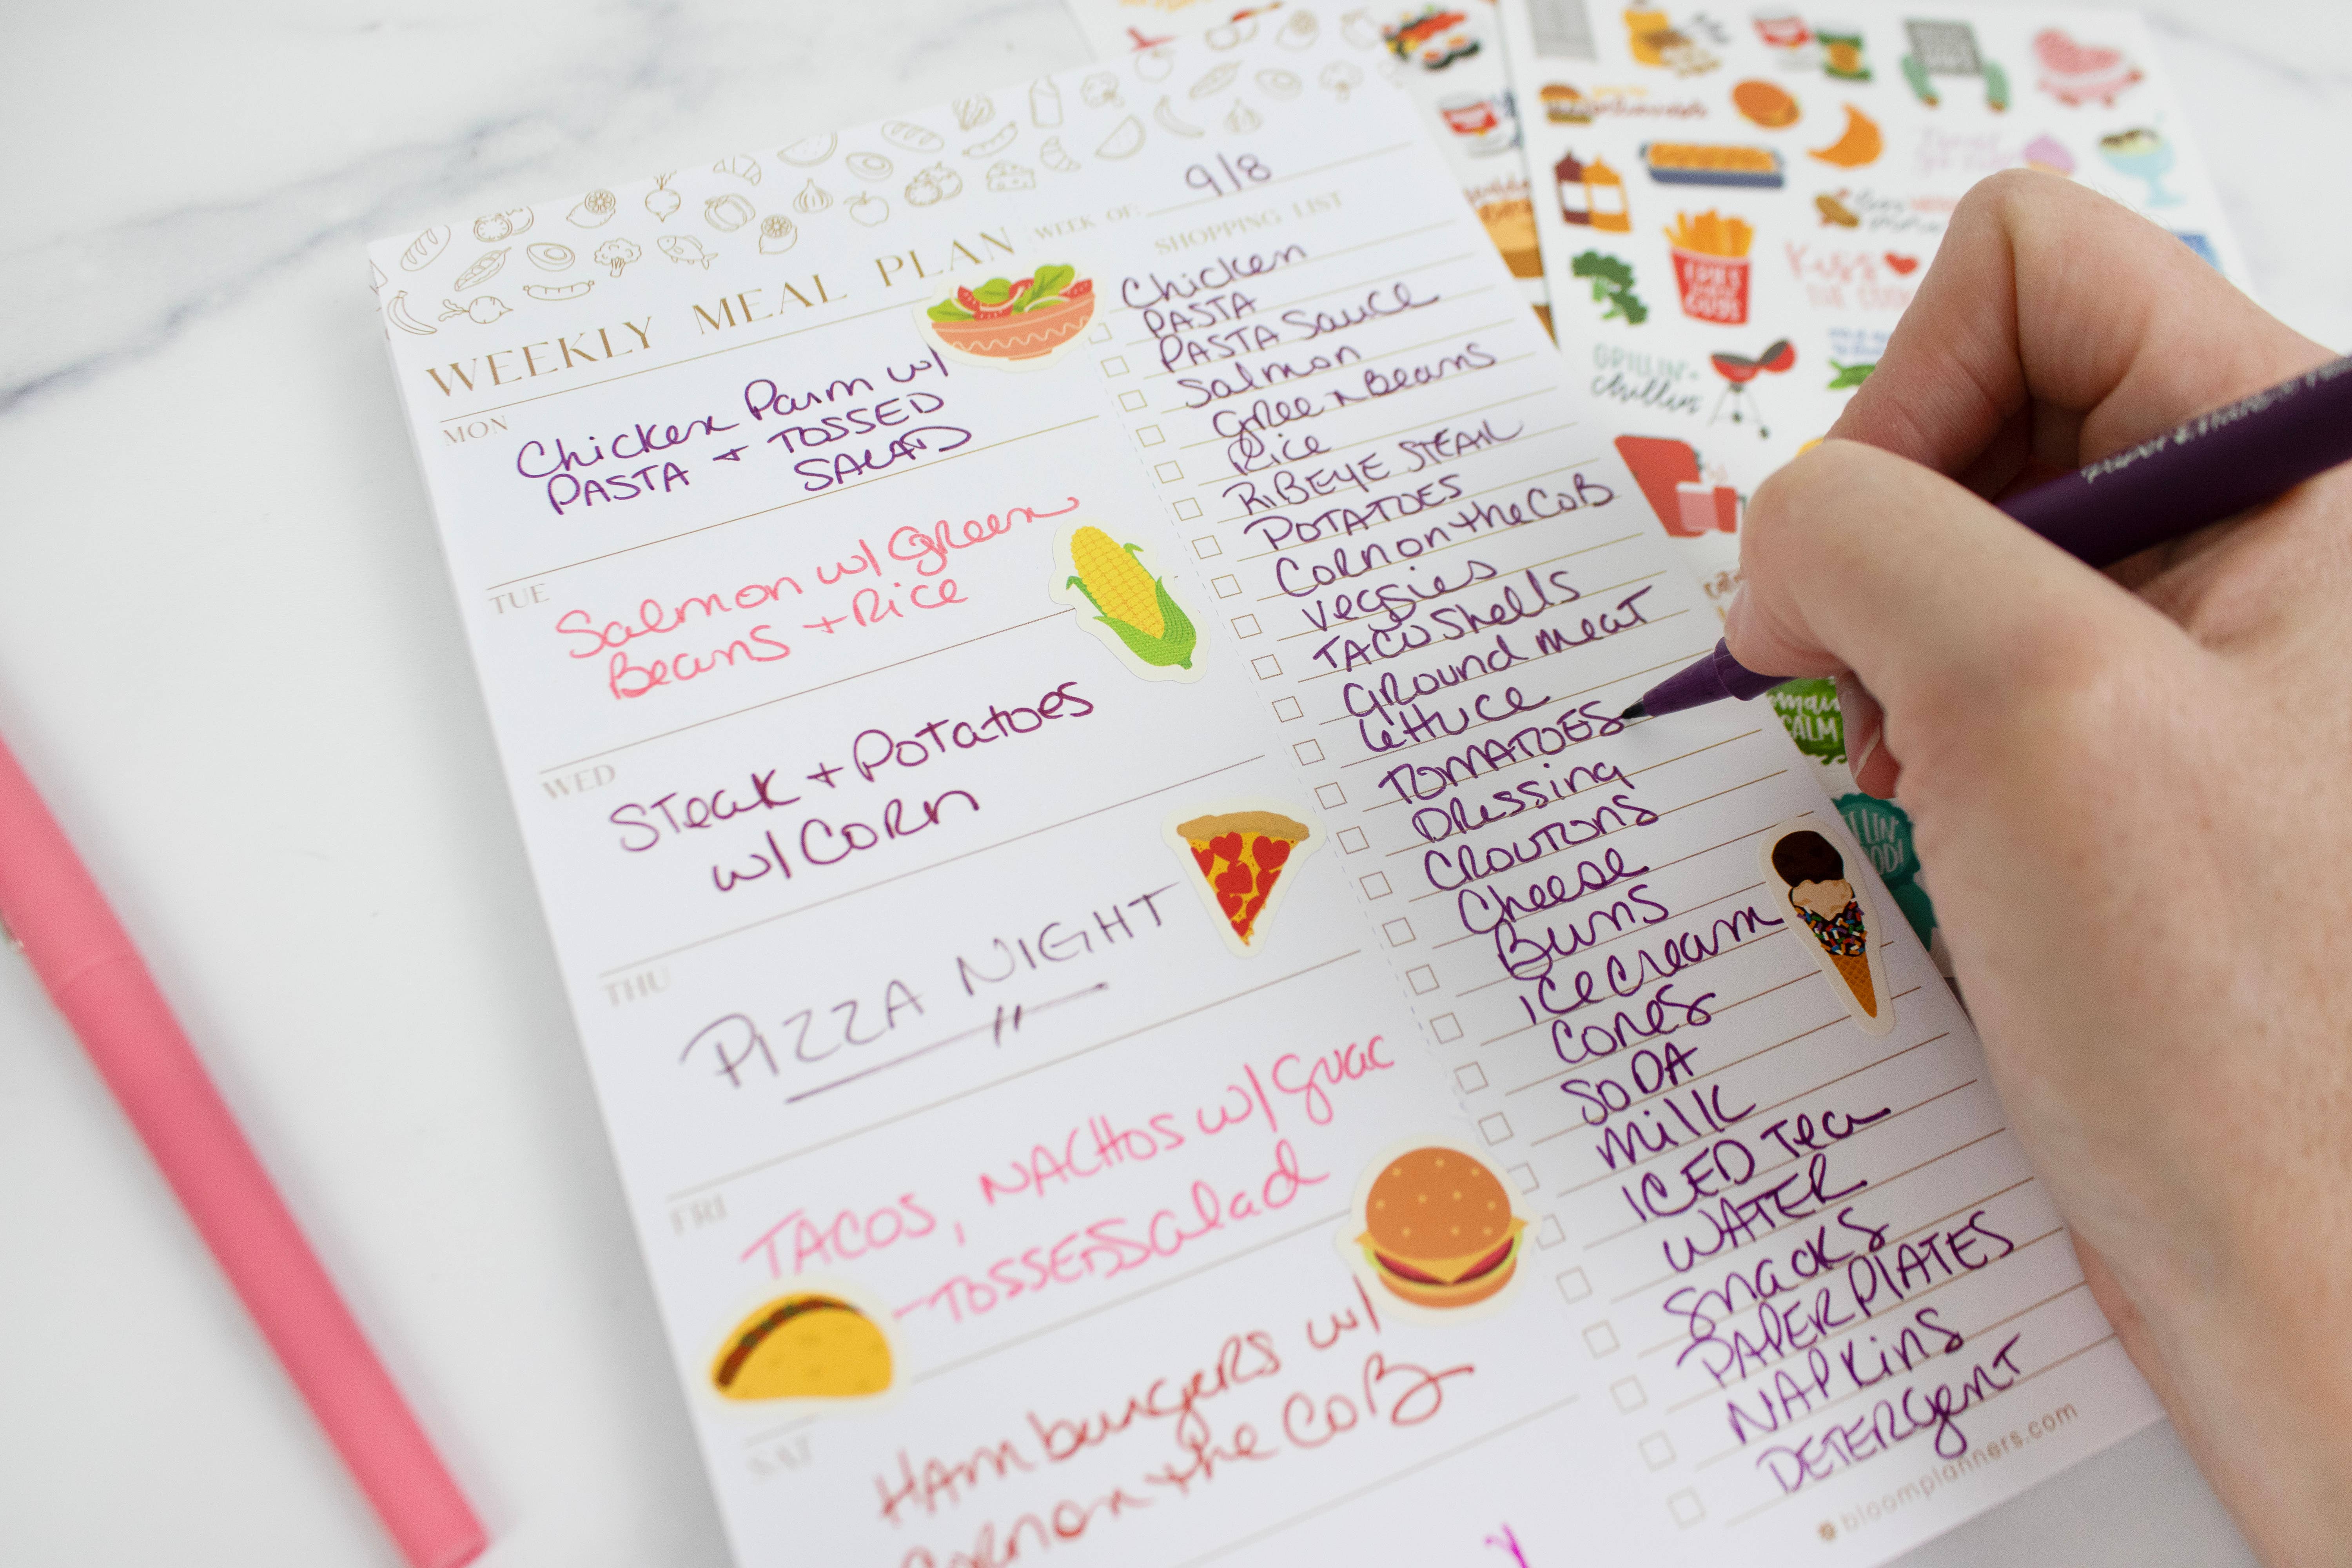 WEEKLY MEAL PLAN
WEEK OF: 9/8
MON
Chicken Parm w/
PASTA + TOSSED
SALAD
TUE
Salmon w/ Green
Beans + Rice
WED
Steak + Potatoes
w/ Corn
THU
PIZZA NIGHT
FRI
TACOS, NACHOS w/ guac
- TOSSED Salad
SAT
Hamburgers w/
Corn on the COB
SHOPPING LIST
Chicken
PASTA
PASTA Sauce
Salmon
Green Beans
Rice
RIBEYE STEAK
POTATOES
Corn on the COB
Veggies
TACO Shells
Ground meat
Lettuce
TOMATOES
Dressing
CROUTONS
Cheese
Buns
Ice cream
Cones
SODA
Milk
ICED Tea
WATER
Snacks
PAPER PLATES
NAPKINS
DETERGENT
bloomplanners.com
FRIES
GUYS
KISS
THE COOK
GRILLIN' +
Chillin'
CALM